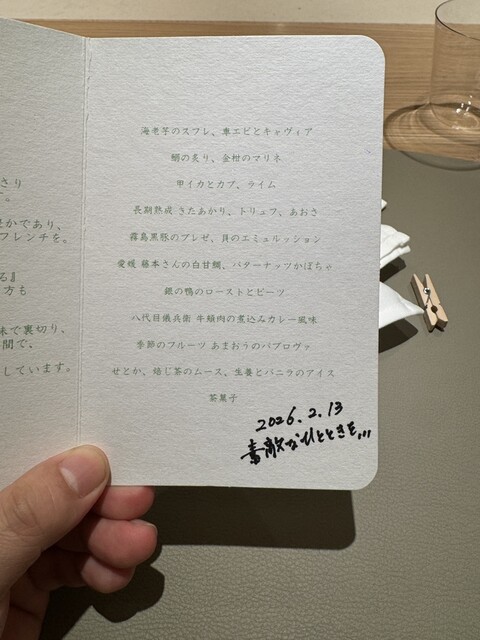 さり
す。
かであり、
フレンチを。
る』
方も
味で裏切り、
間で、
しています。
海老芋のスフレ、車エビとキャヴィア
鯛の炙り、金柑のマリネ
甲イカとカブ、ライム
長期熟成 きたあかり、トリュフ、あおさ
霧島黒豚のブレゼ、貝のエミュルッション
愛媛 藤本さんの白甘鯛、バターナッツかぼちゃ
銀の鴨のローストとビーツ
八代目儀兵衛 牛頬肉の煮込みカレー風味
季節のフルーツ あまおうのパブロヴァ
せとか、焙じ茶のムース、生姜とバニラのアイス
茶菓子
2026.2.13
素敵なひとときを...